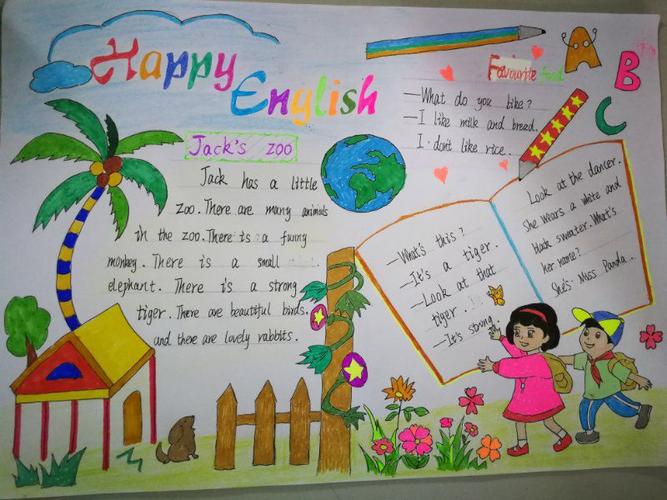 Happy
English
Favourite food
B
C
—What do you like?
—I like milk and breed.
I don't like rice.
Jack's zoo
Jack has a little
zoo. There are many animals
in the zoo. There is a funny
monkey. There is a small
elephant. There is a strong
tiger. There are beautiful birds.
and there are lovely rabbits.
—What's this?
—It's a tiger.
—Look at that
tiger.
—It's strong.
Look at the dancer.
She wears a white and
black sweater. What's
her name?
She's Miss Panda.